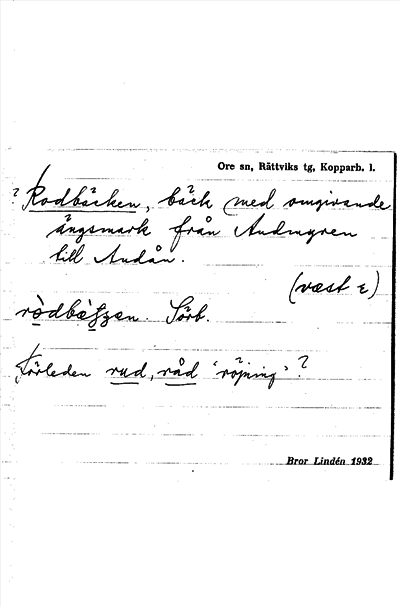 Ore sn, Rättviks tg, Kopparb. l.
? Rodbäcken, bäck med omgivande
ängsmark från Andmyren
till Andån.
(väst ε)
Sörb.
Förleden rud, råd 'röjning'?
Bror Lindén 1932